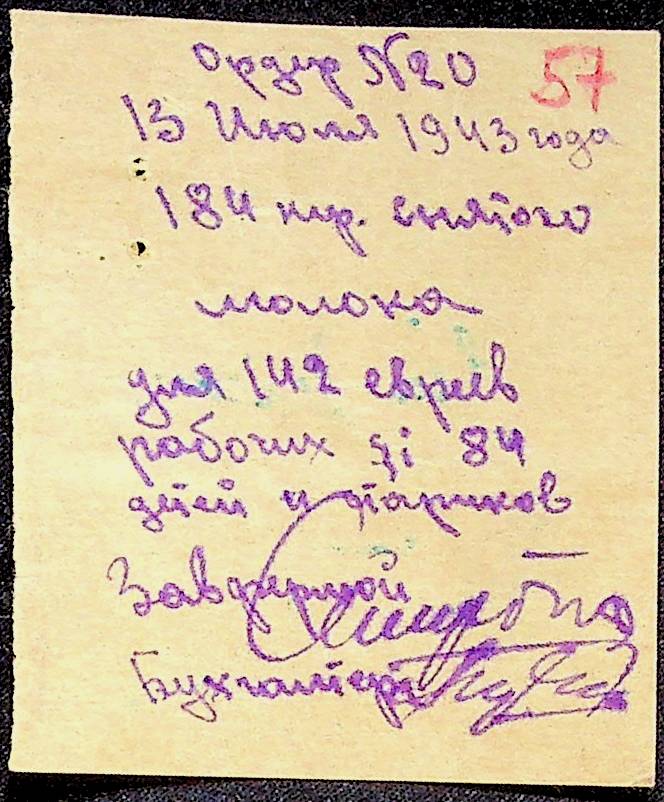 Ордер N20 57
13 Июля 1943 года
184 кгр. снятого
молока
для 142 евреев
рабочих 84
детей и стариков
Завфермой
Бухгалтер